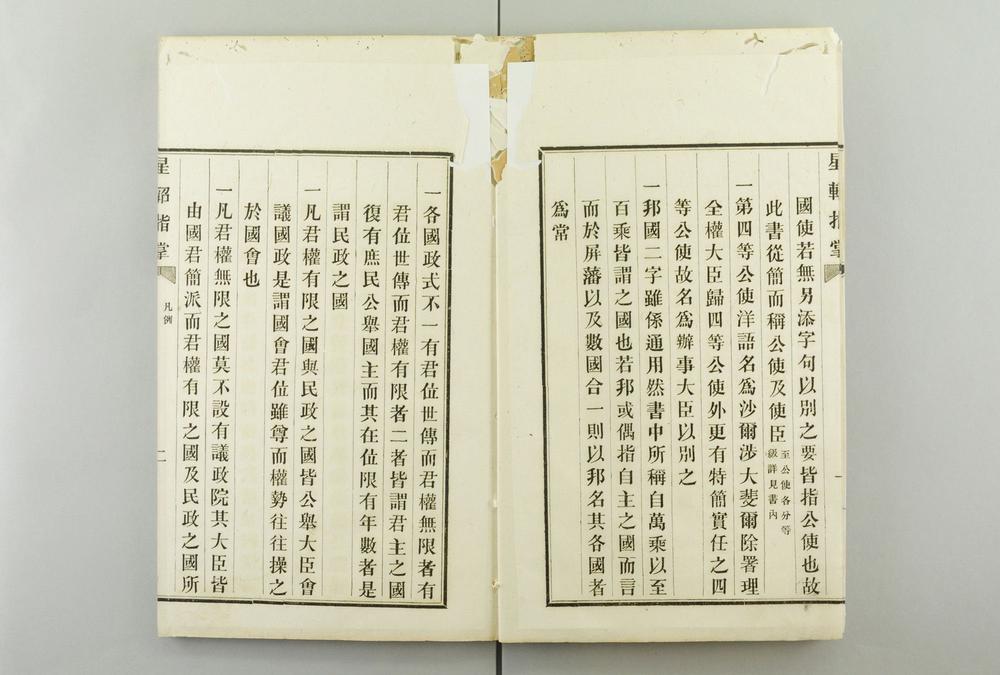 星軺指掌
國使若無另添字句以別之要皆指公使也故
此書從簡而稱公使及使臣至公使各分等
級詳見書內
一第四等公使洋語名爲沙爾涉大斐爾除署理
全權大臣歸四等公使外更有特簡實任之四
等公使故名爲辦事大臣以別之
一邦國二字雖係通用然書中所稱自萬乘以至
百乘皆謂之國也若邦或偶指自主之國而言
而於屏藩以及數國合一則以邦名其各國者
爲常
一各國政式不一有君位世傳而君權無限者有
君位世傳而君權有限者二者皆謂君主之國
復有庶民公舉國主而其在位限有年數者是
謂民政之國
一凡君權有限之國與民政之國皆公舉大臣會
議國政是謂國會君位雖尊而權勢往往操之
於國會也
一凡君權無限之國莫不設有議政院其大臣皆
由國君簡派而君權有限之國及民政之國所
星軺指掌
凡例
二